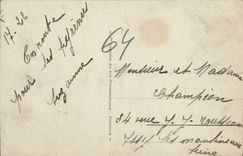 17.28
En route
pour les Pyrénées
Suzanne
64
Monsieur et Madame
Champion
34 rue J. J. Rousseau
Issy les Moulineaux
Seine